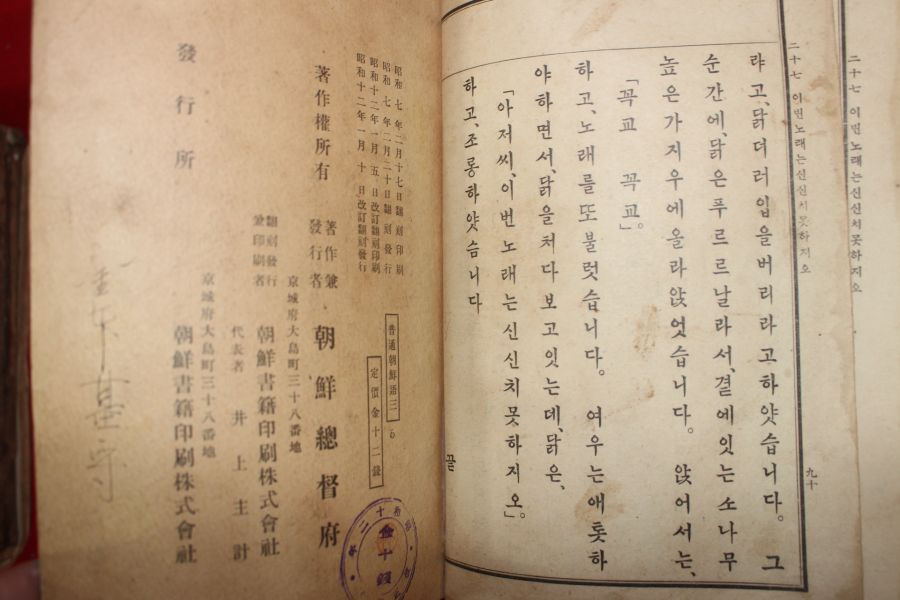 二十七 이번노래는신신치못하지오
二十七 이번노래는신신치못하지오
九十
랴고,닭더러입을버리라고하얏습니다。 그
순간에,닭은푸르르날라서,곁에잇는소나무
높은가지우에올라앉엇습니다。 앉어서는,
「꼭교 꼭교」。
하고,노래를또불럿습니다。 여우는애롯하
야하면서,닭을처다보고잇는데,닭은,
「아저씨,이번노래는신신치못하지오」。
하고,조롱하얏슴니다
끝
昭和 七 年二月十七日飜刻印刷
昭和 七 年二月二十日飜刻發行
昭和十二年一月 五 日改訂飜刻印刷
昭和十二年一月 十 日改訂飜刻發行
普通朝鮮語三
定價金十二錢
著作權所有
著作兼
發行者
朝鮮總督府
京城府大島町三十八番地
飜刻發行
兼印刷者
朝鮮書籍印刷株式會社
代表者 井上主計
京城府大島町三十八番地
發行所
朝鮮書籍印刷株式會社
金十錢